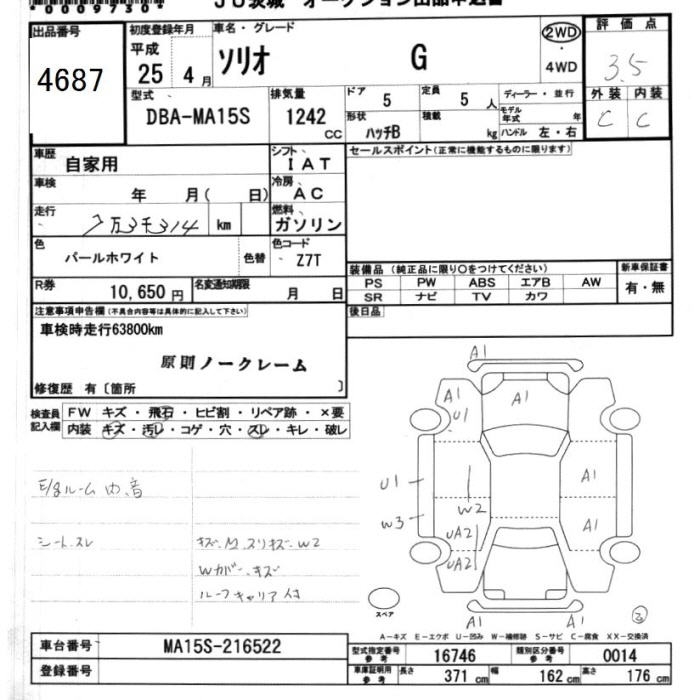 *0009730*
JU茨城 オークション出品申込書
出品番号
4687
初度登録年月
平成
25 4月
車名・グレード
ソリオ G
2WD
・
4WD
評価点
3.5
外装 内装
C C
型式
DBA-MA15S
排気量
1242
cc
ドア 5
定員 5人
形状 ハッチB
積載 kg
ディーラー・並行
モデル年式 年
ハンドル 左・右
車歴
自家用
シフト
IAT
セールスポイント(正常に機能するものに限ります)
車検
年 月( 日)
冷房
AC
走行
7万3千314 km
燃料
ガソリン
色
パールホワイト
色替
色コード
Z7T
装備品(純正品に限り○をつけてください)
PS PW ABS エアB AW
SR ナビ TV カワ
新車保証書
有・無
R券
10,650円
名変通知期限
月 日
後日品
注意事項申告欄(不具合内容等は具体的に記入して下さい)
車検時走行63800km
原則ノークレーム
修復歴 有〔箇所 〕
検査員
記入欄
FW キズ・飛石・ヒビ割・リペア跡・×要
内装 キズ・汚レ・コゲ・穴・スレ・キレ・破レ
E/gルーム内、音
シートスレ
キズ、M、スリキズ、W2
Wカバーキズ
ルーフキャリア付
A1
A1
U1
A1
U1
W3
W2
UA2
UA2
A1
A1
A1
スペア
A−キズ E−エクボ U−凹み W−補修跡 S−サビ C−腐食 XX−交換済
車台番号
MA15S-216522
登録番号
型式指定番号
参考
16746
類別区分番号
参考
0014
車庫証明用
参考
長さ 371 cm
幅 162 cm
高さ 176 cm